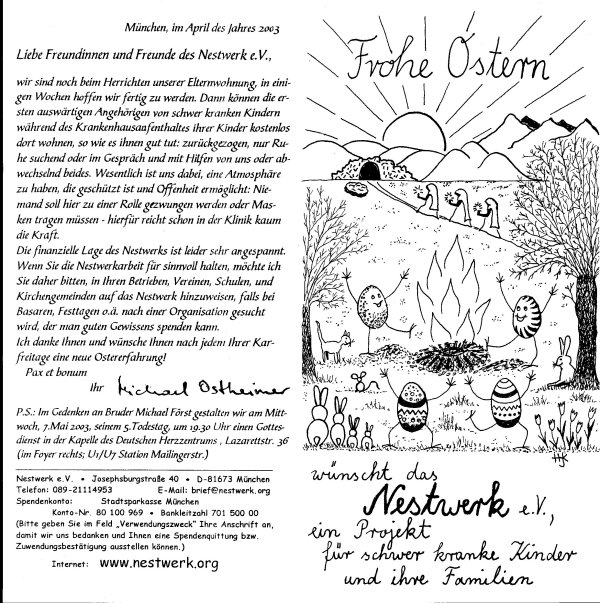 München, im April des Jahres 2003
Liebe Freundinnen und Freunde des Nestwerk e.V.,
wir sind noch beim Herrichten unserer Elternwohnung, in eini-
gen Wochen hoffen wir fertig zu werden. Dann können die er-
sten auswärtigen Angehörigen von schwer kranken Kindern
während des Krankenhausaufenthaltes ihrer Kinder kostenlos
dort wohnen, so wie es ihnen gut tut: zurückgezogen, nur Ru-
he suchend oder im Gespräch und mit Hilfen von uns oder ab-
wechselnd beides. Wesentlich ist uns dabei, eine Atmosphäre
zu haben, die geschützt ist und Offenheit ermöglicht: Nie-
mand soll hier zu einer Rolle gezwungen werden oder Mas-
ken tragen müssen - hierfür reicht schon in der Klinik kaum
die Kraft.
Die finanzielle Lage des Nestwerks ist leider sehr angespannt.
Wenn Sie die Nestwerkarbeit für sinnvoll halten, möchte ich
Sie daher bitten, in Ihren Betrieben, Vereinen, Schulen, und
Kirchengemeinden auf das Nestwerk hinzuweisen, falls bei
Basaren, Festtagen o.ä. nach einer Organisation gesucht
wird, der man guten Gewissens spenden kann.
Ich danke Ihnen und wünsche Ihnen nach jedem Ihrer Kar-
freitage eine neue Ostererfahrung!
Pax et bonum
Ihr Michael Ostheimer
P.S.: Im Gedenken an Bruder Michael Först gestalten wir am Mitt-
woch, 7.Mai 2003, seinem 5.Todestag, um 19.30 Uhr einen Gottes-
dienst in der Kapelle des Deutschen Herzzentrums , Lazarettstr. 36
(im Foyer rechts; U1/U7 Station Mailingerstr.)
Nestwerk e.V. • Josephsburgstraße 40 • D-81673 München
Telefon: 089-21114953 E-Mail: brief@nestwerk.org
Spendenkonto: Stadtsparkasse München
Konto-Nr. 80 100 969 • Bankleitzahl 701 500 00
(Bitte geben Sie im Feld „Verwendungszweck" Ihre Anschrift an,
damit wir uns bedanken und Ihnen eine Spendenquittung bzw.
Zuwendungsbestätigung ausstellen können.)
Internet: www.nestwerk.org
Frohe Ostern
HJK
wünscht das
Nestwerk e.V.,
ein Projekt
für schwer kranke Kinder
und ihre Familien